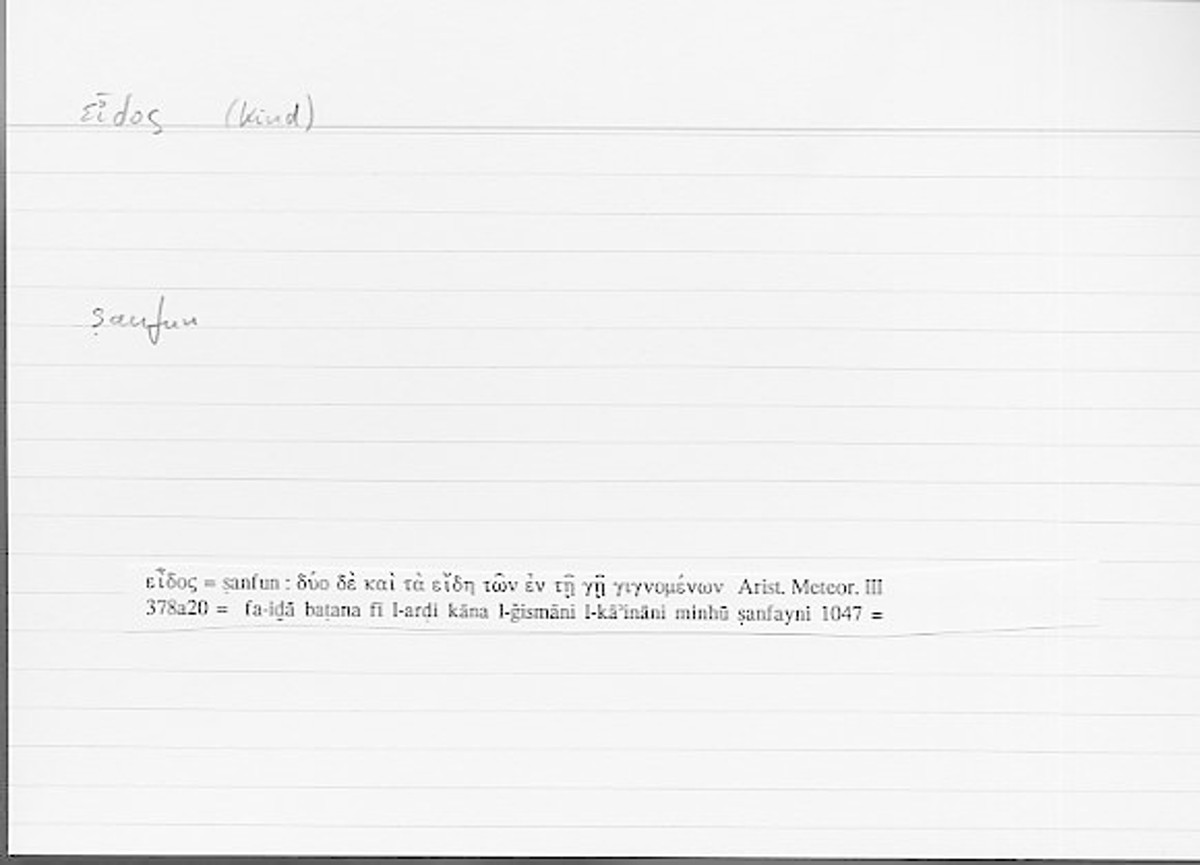 εἶδος (kind)
ṣanfun
εἶδος = ṣanfun : δύο δὲ καὶ τὰ εἴδη τῶν ἐν τῇ γῇ γιγνομένων Arist. Meteor. III
378a20 = fa-iḏā baṭana fī l-arḍi kāna l-ǧismāni l-kāʾināni minhū ṣanfayni 1047 =